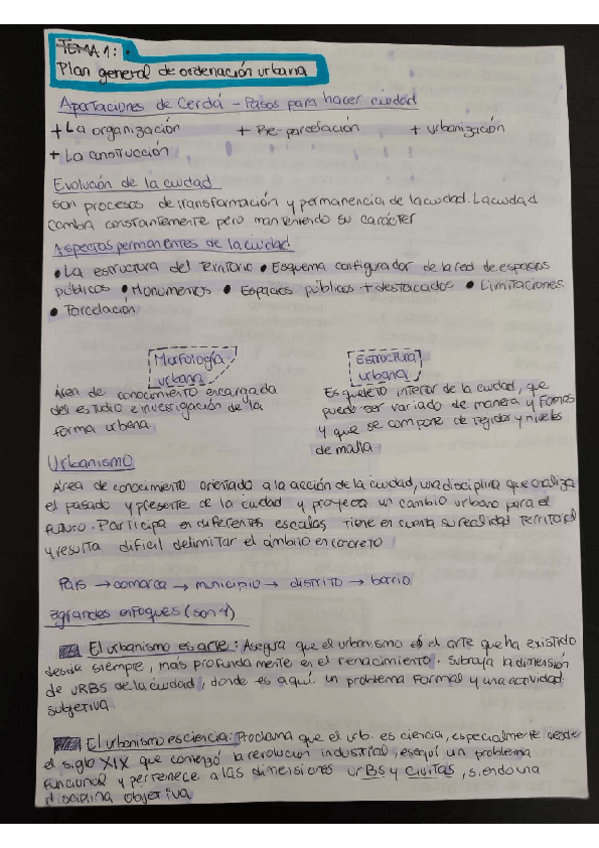 TEMA 1:
Plan general de ordenación urbana
Aportaciones de Cerdá - Pasos para hacer ciudad
+ La organización + Pre-parcelación + urbanización
+ La construcción
Evolución de la ciudad
son procesos de transformación y permanencia de la ciudad. La ciudad
cambia constantemente pero manteniendo su carácter
Aspectos permanentes de la ciudad
• La estructura del territorio • Esquema configurador de la red de espacios
públicos • Monumentos • Espacios públicos + destacados • Limitaciones
• Parcelación
Morfología
urbana
Área de conocimiento encargada
del estudio e investigación de la
forma urbana.
Estructura
urbana
Esqueleto interior de la ciudad, que
puede ser variado de manera y formas
y que se compone de tejidos y niveles
de malla
Urbanismo
Área de conocimiento orientado a la acción de la ciudad, una disciplina que analiza
el pasado y presente de la ciudad y proyecta un cambio urbano para el
futuro. Participa en diferentes escalas tiene en cuenta su realidad territorial
y resulta dificil delimitar el ámbito en concreto
País → comarca → municipio → distrito → barrio
3 grandes enfoques (son 4)
El urbanismo es arte: Asegura que el urbanismo es el arte que ha existido
desde siempre, más profundamente en el renacimiento. Subraja la dimensión
de URBS de la ciudad, donde es aquí un problema formal y una actividad
subjetiva.
El urbanismo es ciencia: Proclama que el urb. es ciencia, especialmente desde
el siglo XIX que comenzó la revolución industrial, es aquí un problema
funcional y pertenece a las dimensiones urBS y civitas, siendo una
disciplina objetiva